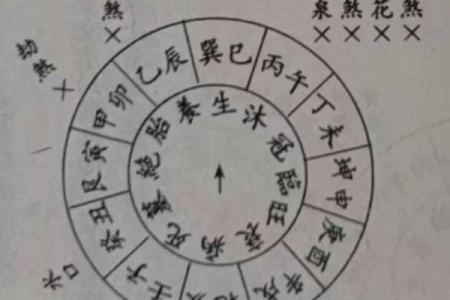 煞
泉煞花煞
劫煞
水口
乙辰
巽巳
丙午
丁未
坤申
庚酉
辛戌
壬子
癸丑
艮寅
甲卯
養生沐冠臨旺衰病死墓絕胎